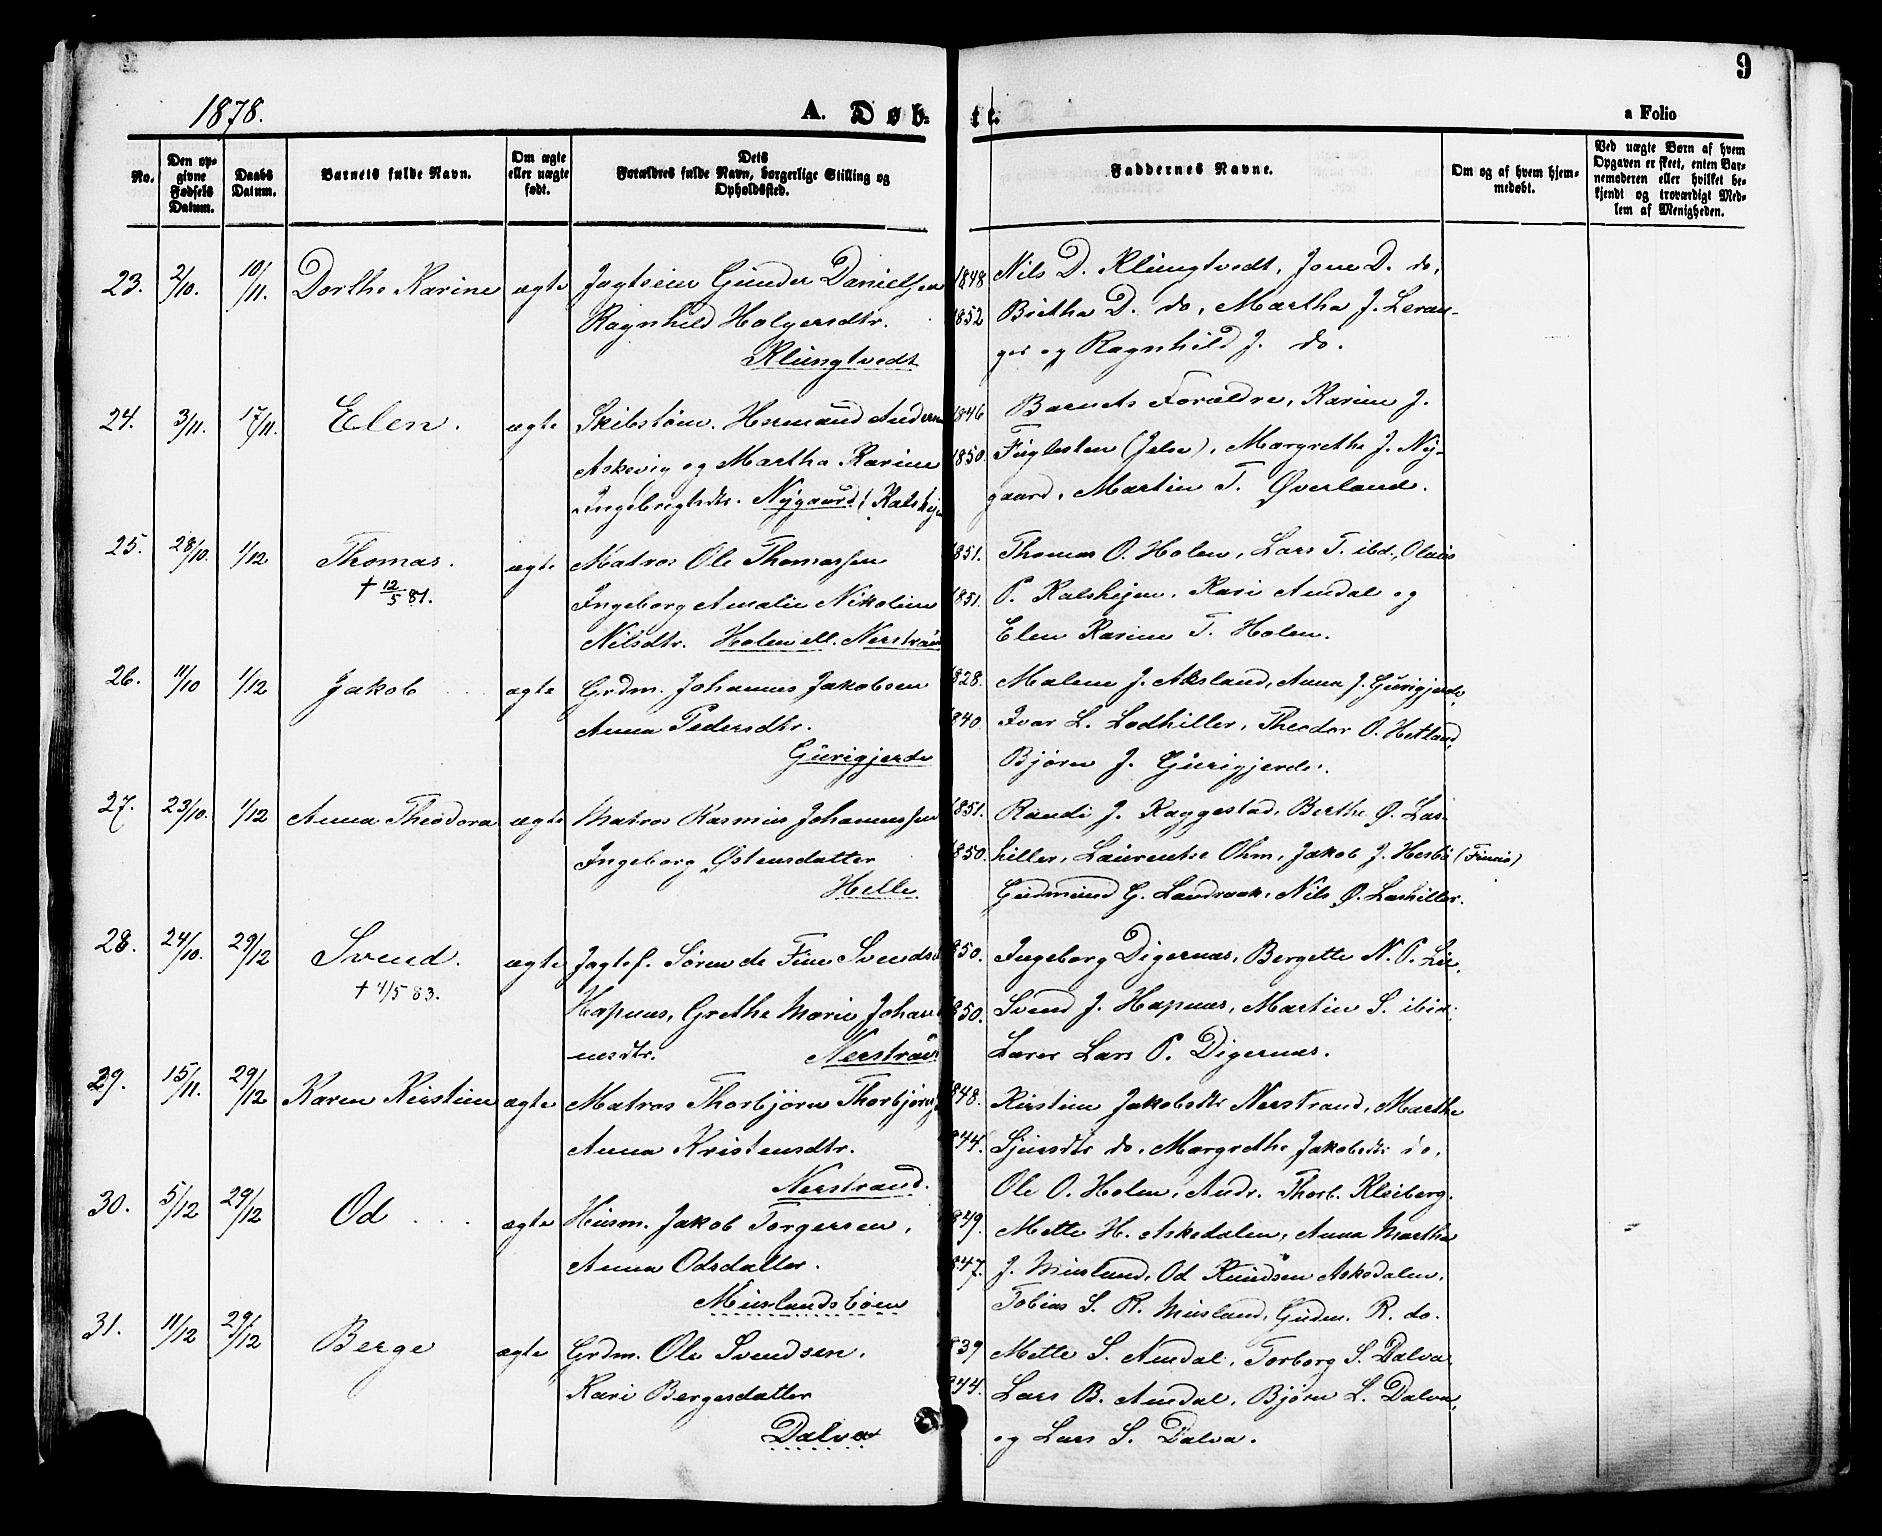 9
1878.
A. Døb-
te.
a Folio
No.
Den op-
givne
Fødsels
Datum.
Daabs
Datum.
Barnets fulde Navn.
Om ægte
eller uægte
født.
Dets
Forældres fulde Navn, borgerlige Stilling og
Opholdssted.
Faddernes Navne.
Om og af hvem hjem-
medøbt.
Ved uægte Børn af hvem
Opgaven er skeet, enten Bar-
nemoderen eller hvilket be-
kjendt og troværdigt Med-
lem af Menigheden.
23. 2/10. 10/11. Dorthe Karine ægte Jagteier Gunder Danielsen 1848 Nils D. Klungtvedt, Jone D. do,
Ragnhild Holgersdtr. 1852 Britha D. do, Martha J. Leran-
Klungtvedt ger og Ragnhild J. do.
24. 3/11. 17/11. Elen. ægte Skibstøm. Hermand Andersen 1846 Barnets Forældre, Karine J.
Askevig og Martha Karine 1850. Fuglesten (Jelse), Margrethe J. Ny-
Ingebrigtsdtr. Nygaard (Kalshejen gaard, Martin T. Øverland.
25. 28/10. 1/12 Thomas. ægte Matros Ole Thomassen 1851. Thomas O. Holen, Lars T. ibd., Olaus
† 12/5 81. Ingeborg Amalie Nikoline 1851. P. Kalshejen, Kari Amdal og
Nilsdtr. Holen ell. Nerstrand Elen Karine T. Holen.
26. 11/10 1/12 Jakob ægte Grdm. Johannes Jakobsen 1828. Malene J. Aksland, Anna J. Gurigjerde,
Anna Pedersdtr. 1840. Ivar L. Lodhiller, Theodor O. Hetland,
Gurigjerde Bjørn J. Gurigjerde.
27. 23/10. 1/12 Anna Theodora ægte Matros Rasmus Johannessen 1851. Randi J. Raggestad, Berthe Ø. Las-
Ingeborg Østensdatter 1850. hiller, Laurentse Ohm, Jakob J. Hesbø (Finnø)
Helle. Gudmund G. Landraak, Nils Ø. Lashiller.
28. 24/10. 29/12 Svend. ægte Jagtef. Søren de Fine Svendsen 1850. Ingeborg Digernes, Bergette N. P. Lie,
† 4/5 83. Hapnes, Grethe Marie Johan- 1850. Svend J. Hapnes, Martin S. ibid.
nesdtr. Nerstrand Lærer Lars P. Digernes.
29. 15/11. 29/12 Karen Kirstine ægte Matros Thorbjørn Thorbjørnsen 1848. Kirstine Jakobsdtr Nerstrand, Marthe
Anna Kristensdtr. 1844. Sjursdtr do, Margrethe Jakobsdtr do,
Nerstrand. Ole O. Holen, Andr. Thorb. Kleiberg.
30. 5/12 29/12 Od ægte Husm. Jakob Torgersen, 1849. Mette H. Askedalen, Anna Martha
Anna Odsdatter. 1847. J. Musland, Od Knudsen Askedalen,
Muslandsbøen Tobias S. R. Musland, Gudm. R. do.
31. 11/12 29/12 Berge ægte Grdm. Ole Svendsen. 1839 Mette S. Amdal, Torborg S. Dalva
Kari Bergesdatter 1844. Lars B. Amdal, Bjørn L. Dalva,
Dalva og Lars S. Dalva.